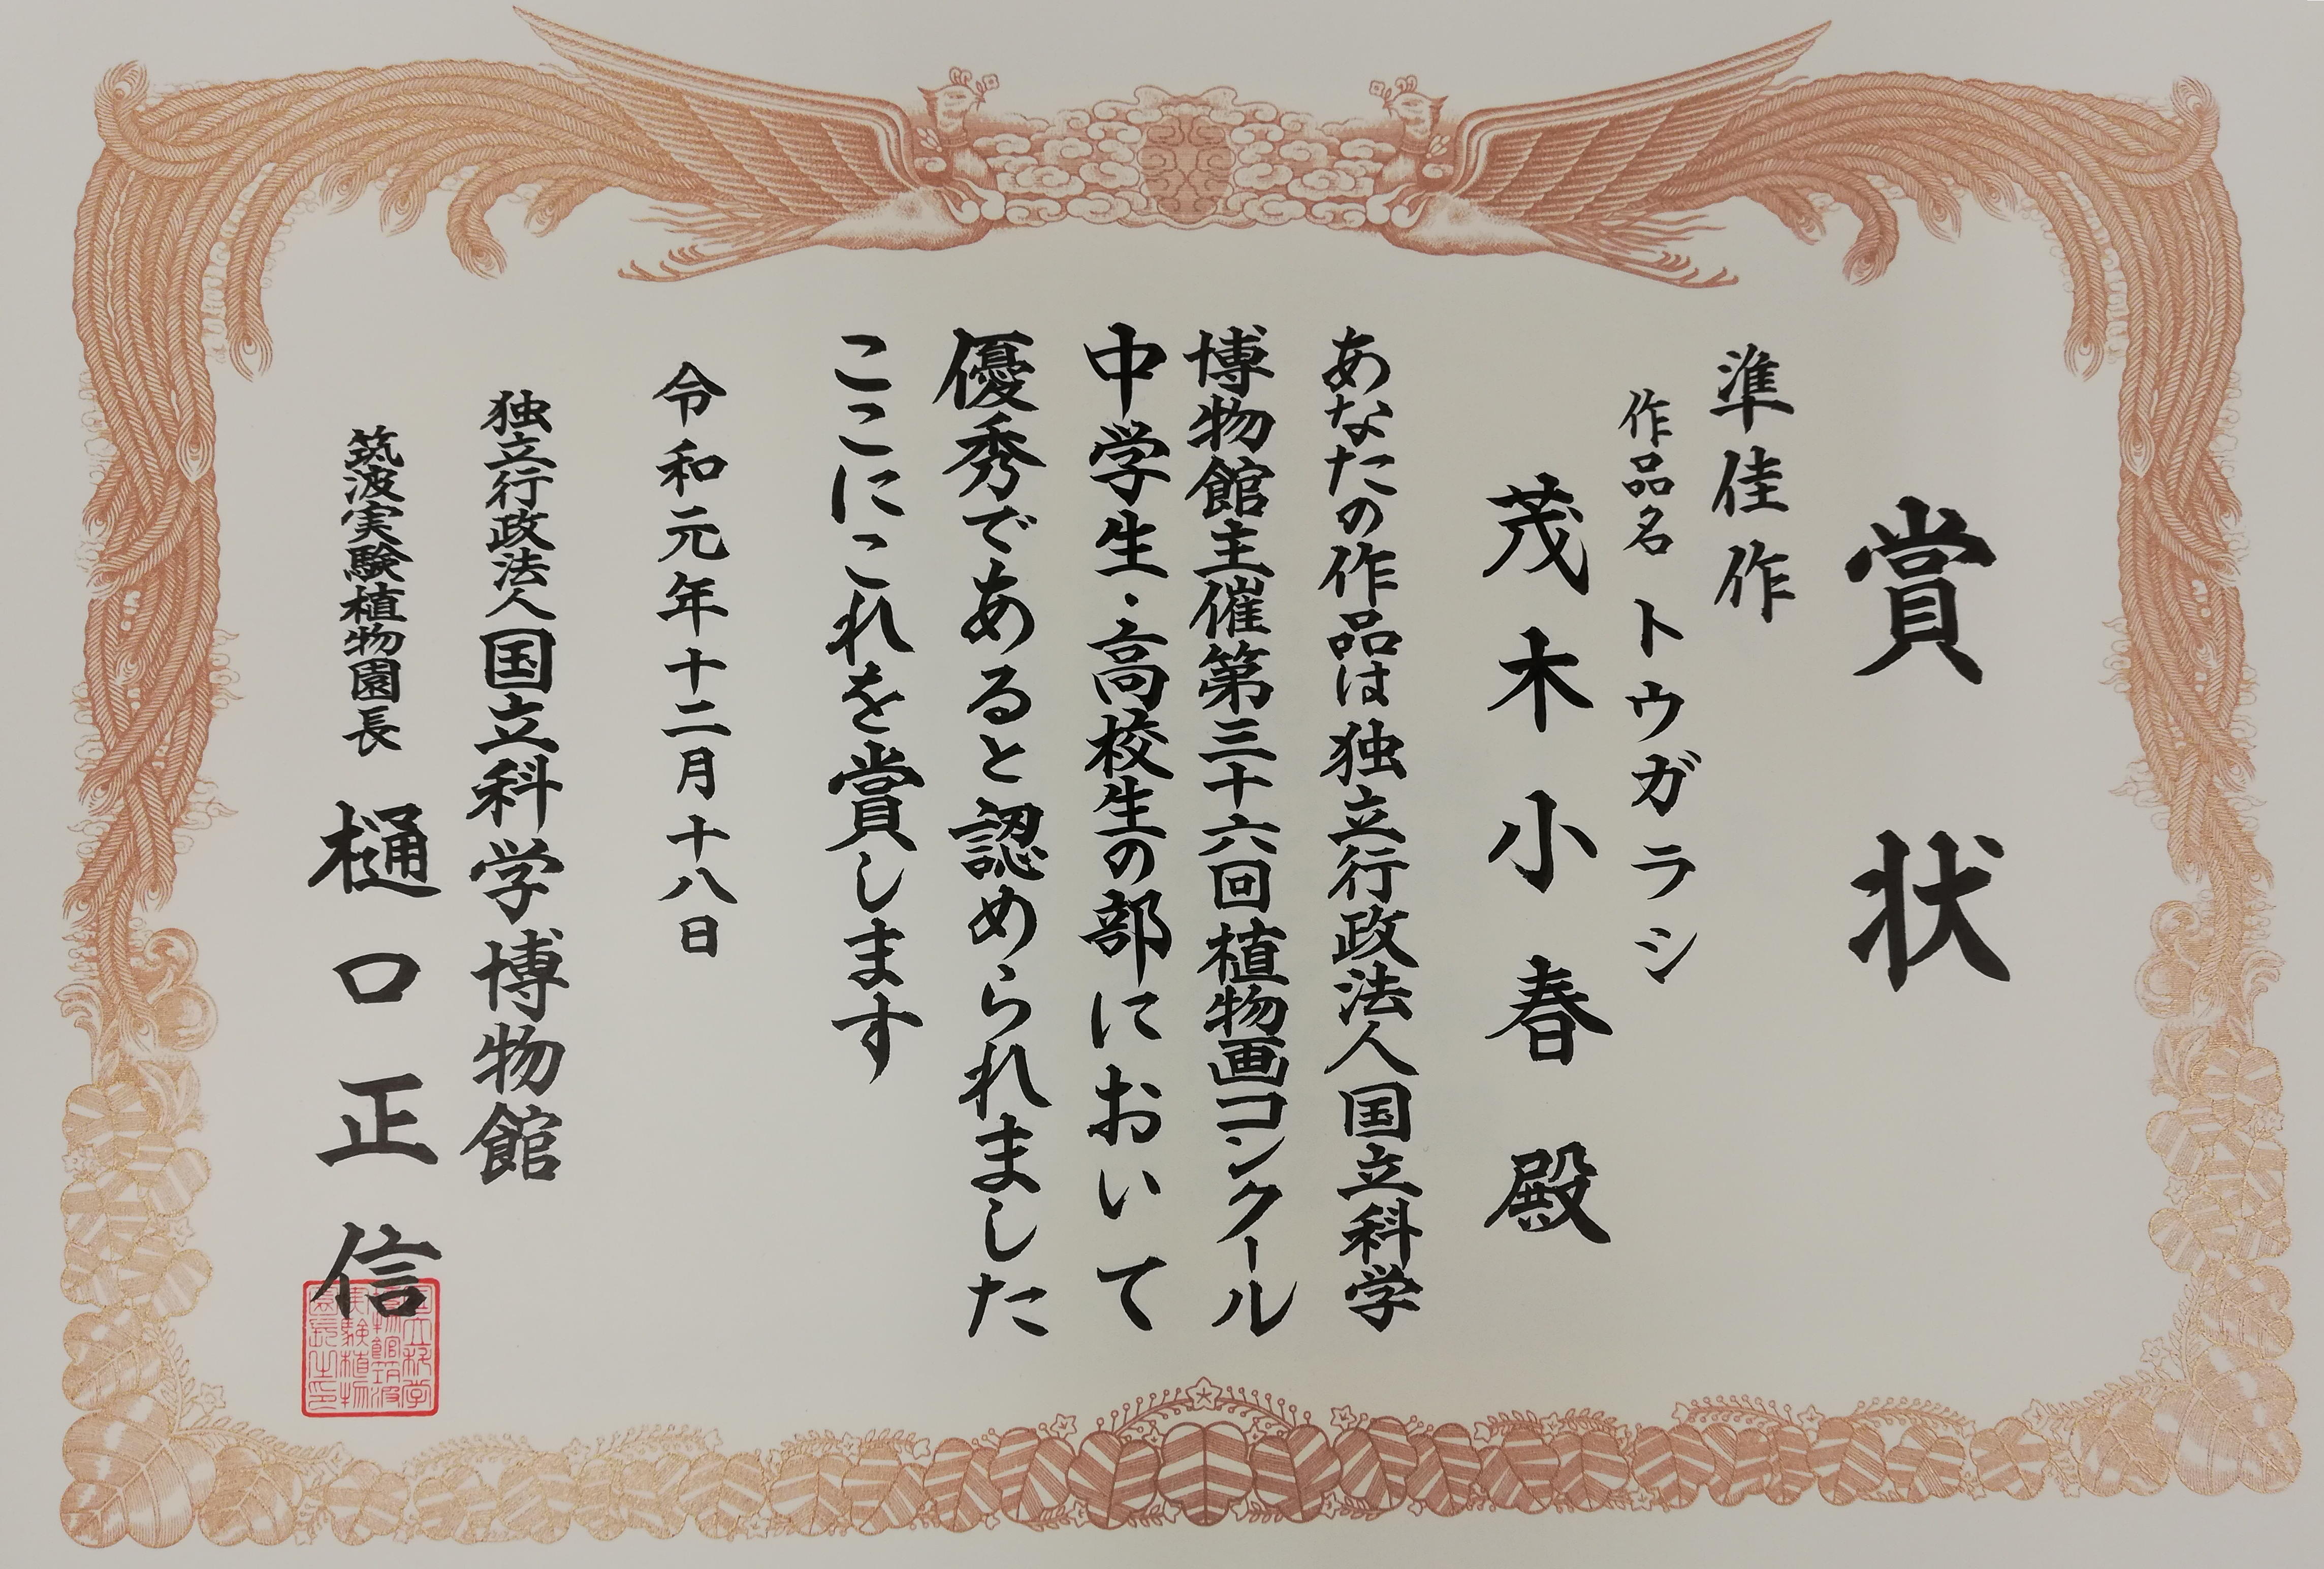 賞状
準佳作
作品名 トウガラシ
茂木小春 殿
あなたの作品は独立行政法人国立科学
博物館主催第三十六回植物画コンクール
中学生・高校生の部において
優秀であると認められました
ここにこれを賞します
令和元年十二月十八日
独立行政法人国立科学博物館
筑波実験植物園長 樋口正信